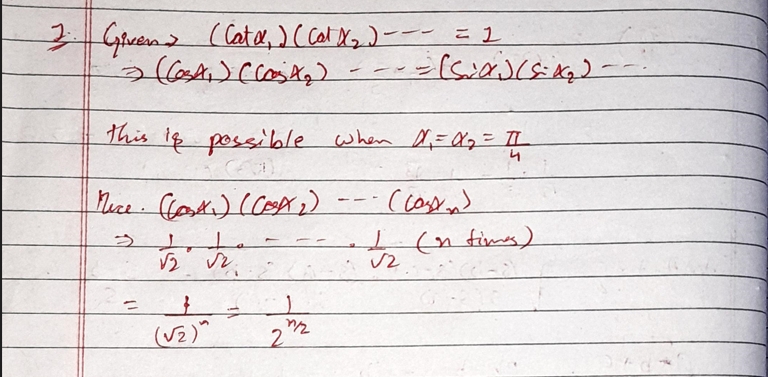 2. Given → (Cot α₁)(Cot α₂) ---- = 1
⇒ (Cosα₁)(Cosα₂) ----- = (Sinα₁)(Sinα₂) ---
this is possible when α₁ = α₂ = π/4
(Cosα₁)(Cosα₂) --- (Cosαₙ)
⇒ 1/√2 · 1/√2 · ---- · 1/√2 (n times)
= 1/(√2)ⁿ = 1/2^(n/2)